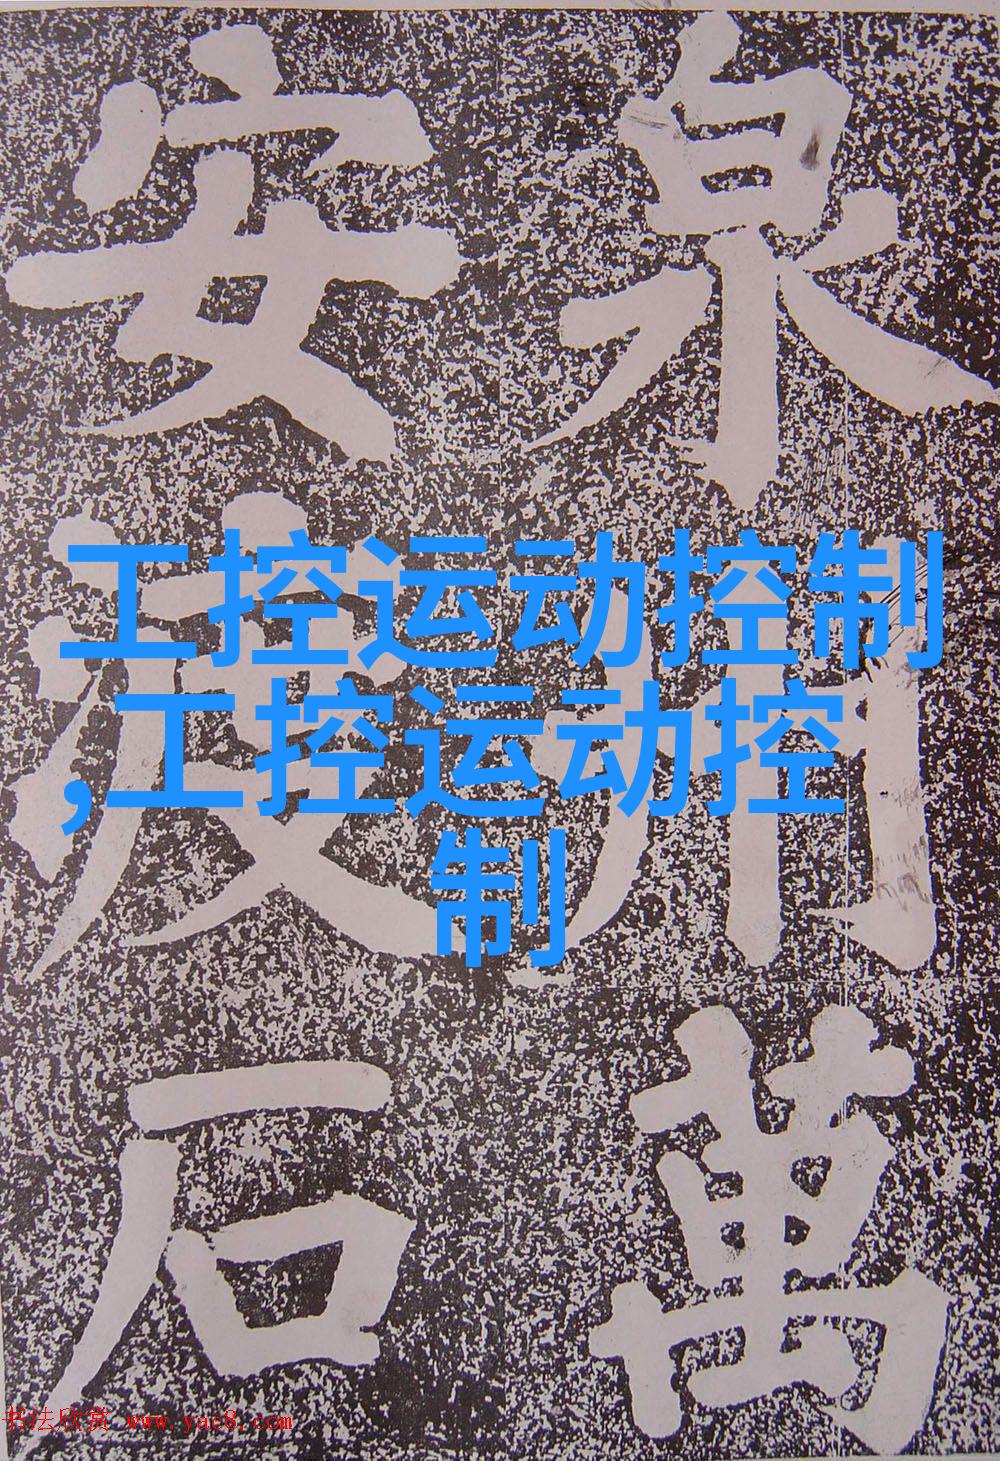 泉州萬
安渡石
工控运动控制
,工控运动控
制
书法欣赏 www.yac8.com